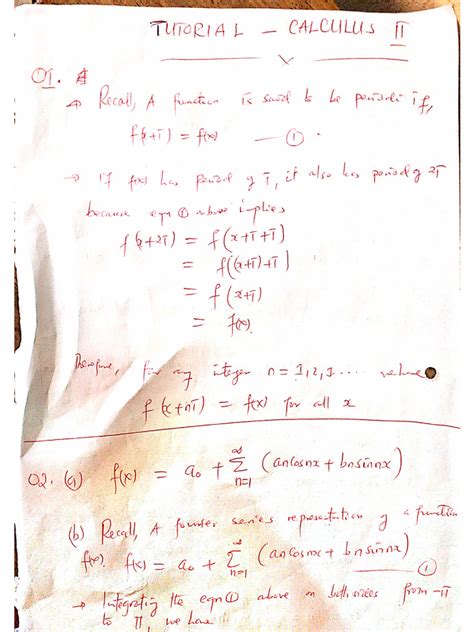 TUTORIAL – CALCULUS II
Q1.
→ Recall, A function is said to be periodic if,
f(x+T) = f(x) — ①
→ If f(x) has period of T, it also has period of 2T
because eqn ① above implies
f(x+2T) = f(x+T+T)
= f((x+T)+T)
= f(x+T)
= f(x).
Therefore, for any integer n = 1,2,3.... we have
f(x+nT) = f(x) for all x
Q2. (a) f(x) = a₀ + ∑ₙ₌₁^∞ (ancosnx + bnsinnx)
(b) Recall, A fourier series representation of a function
f(x). f(x) = a₀ + ∑ₙ₌₁^∞ (ancosnx + bnsinnx) — ①
→ Integrating the eqn ① above on both sides from -π
to π, we have